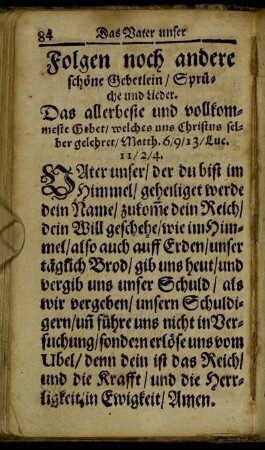 84 Das Vater unser
Folgen noch andere
schöne Gebetlein / Sprü-
che und Lieder.
Das allerbeste und vollkom-
meste Gebet / welches uns Christus sel-
ber gelehret / Matth. 6/9/13/Luc.
11/2/4.
VAter unser / der du bist im
Himmel / geheiliget werde
dein Name / zukom̃e dein Reich /
dein Will geschehe / wie im Him-
mel / also auch auff Erden / unser
täglich Brod / gib uns heut / und
vergib uns unser Schuld / als
wir vergeben / unsern Schuldi-
gern / uñ führe uns nicht in Ver-
suchung / sondern erlöse uns vom
Ubel / denn dein ist das Reich /
und die Krafft / und die Herr-
ligkeit, in Ewigkeit / Amen.